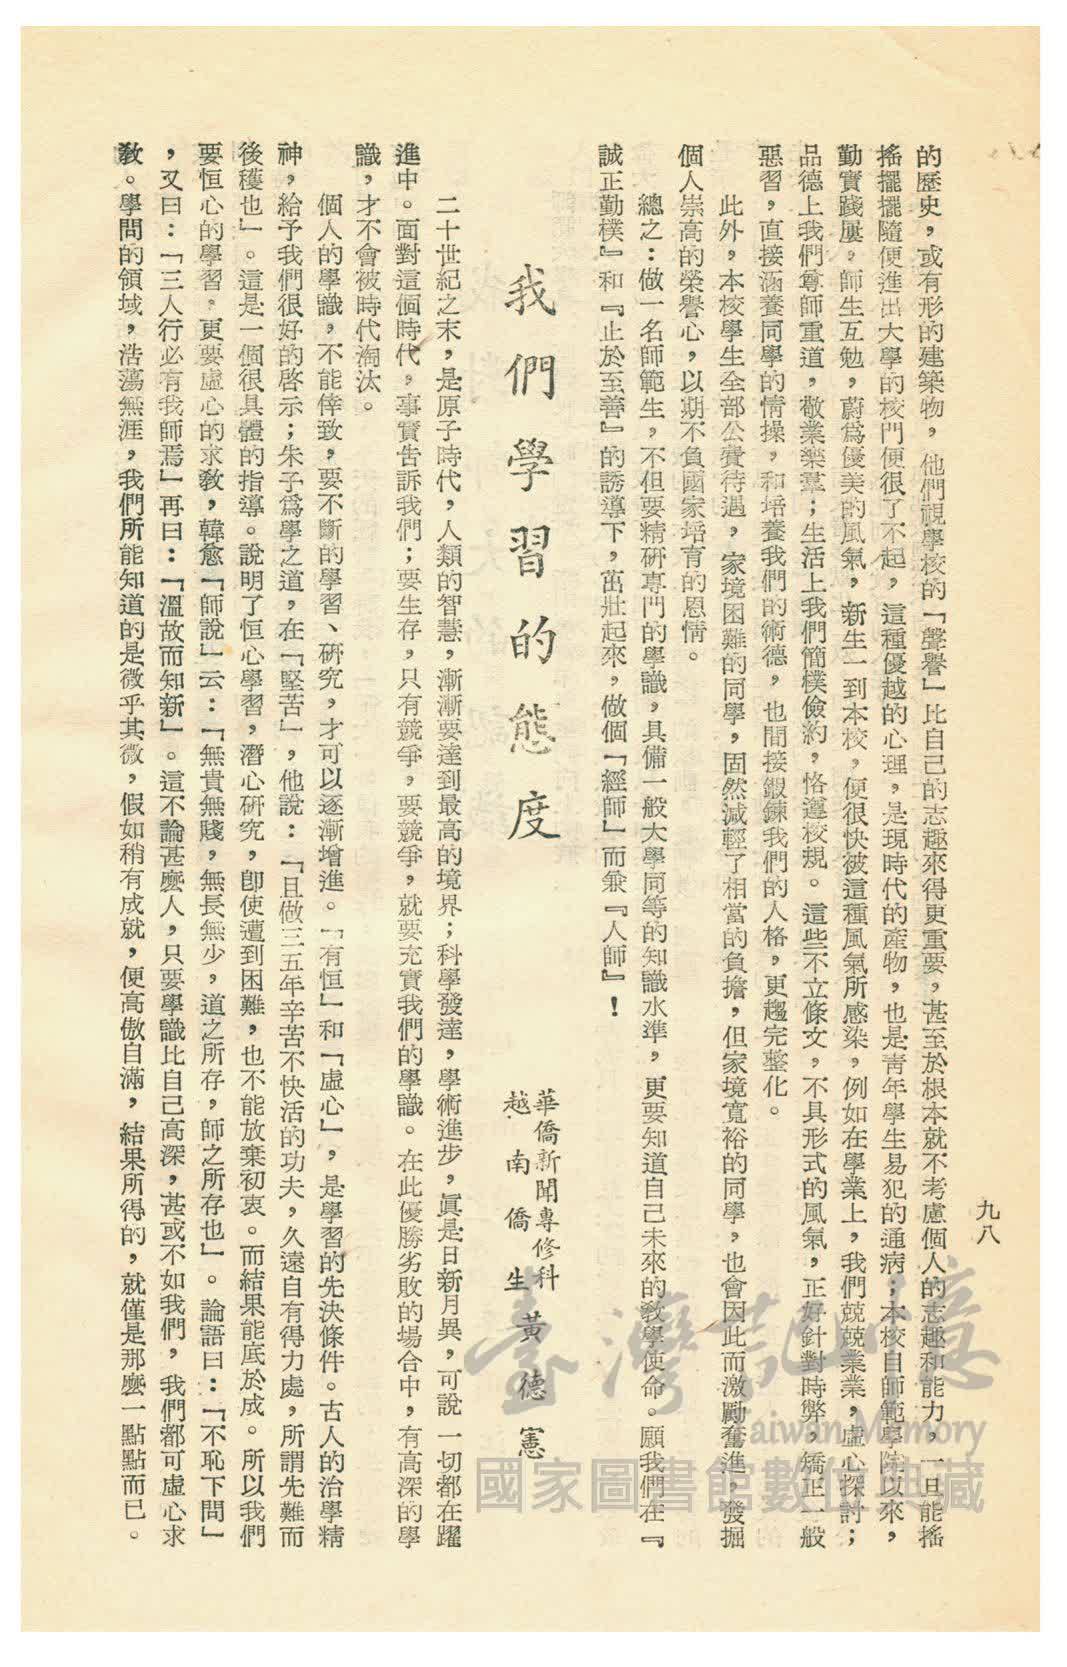 九八
的歷史，或有形的建築物，他們視學校的「聲譽」比自己的志趣來得更重要，甚至於根本就不考慮個人的志趣和能力，一旦能搖
搖擺擺隨便進出大學的校門便很了不起，這種優越的心理，是現時代的產物，也是靑年學生易犯的通病；本校自師範學院以來，
勤實踐屢，師生互勉，蔚爲優美的風氣，新生一到本校，便很快被這種風氣所感染，例如在學業上，我們兢兢業業，虛心探討；
品德上我們尊師重道，敬業樂羣；生活上我們簡樸儉約，恪遵校規。這些不立條文，不具形式的風氣，正好針對時弊，矯正一般
惡習，直接涵養同學的情操，和培養我們的術德，也間接鍛鍊我們的人格，更趨完整化。
此外，本校學生全部公費待遇，家境困難的同學，固然減輕了相當的負擔，但家境寬裕的同學，也會因此而激勵奮進，發掘
個人崇高的榮譽心，以期不負國家培育的恩情。
總之：做一名師範生，不但要精硏專門的學識，具備一般大學同等的知識水準，更要知道自己未來的敎學使命。願我們在『
誠正勤樸』和『止於至善』的誘導下，茁壯起來，做個「經師」而兼『人師』！
我們學習的態度
華僑新聞專修科
越南僑生
黃德憲
二十世紀之末，是原子時代，人類的智慧，漸漸要達到最高的境界；科學發達，學術進步，眞是日新月異，可說一切都在躍
進中。面對這個時代，事實告訴我們；要生存，只有競爭，要競爭，就要充實我們的學識。在此優勝劣敗的場合中，有高深的學
識，才不會被時代淘汰。
個人的學識，不能倖致，要不斷的學習、硏究，才可以逐漸增進。「有恒」和「虛心」，是學習的先決條件。古人的治學精
神，給予我們很好的啓示；朱子爲學之道，在「堅苦」，他說：「且做三五年辛苦不快活的功夫，久遠自有得力處，所謂先難而
後穫也」。這是一個很具體的指導。說明了恒心學習，潛心硏究，卽使遭到困難，也不能放棄初衷。而結果能底於成。所以我們
要恒心的學習，更要虛心的求敎，韓愈「師說」云：「無貴無賤，無長無少，道之所存，師之所存也」。論語曰：「不恥下問」
，又曰：「三人行必有我師焉」再曰：「溫故而知新」。這不論甚麽人，只要學識比自己高深，甚或不如我們，我們都可虛心求
敎。學問的領域，浩蕩無涯，我們所能知道的是微乎其微，假如稍有成就，便高傲自滿，結果所得的，就僅是那麽一點點而已。
臺灣記憶
Taiwan Memory
國家圖書館數位典藏